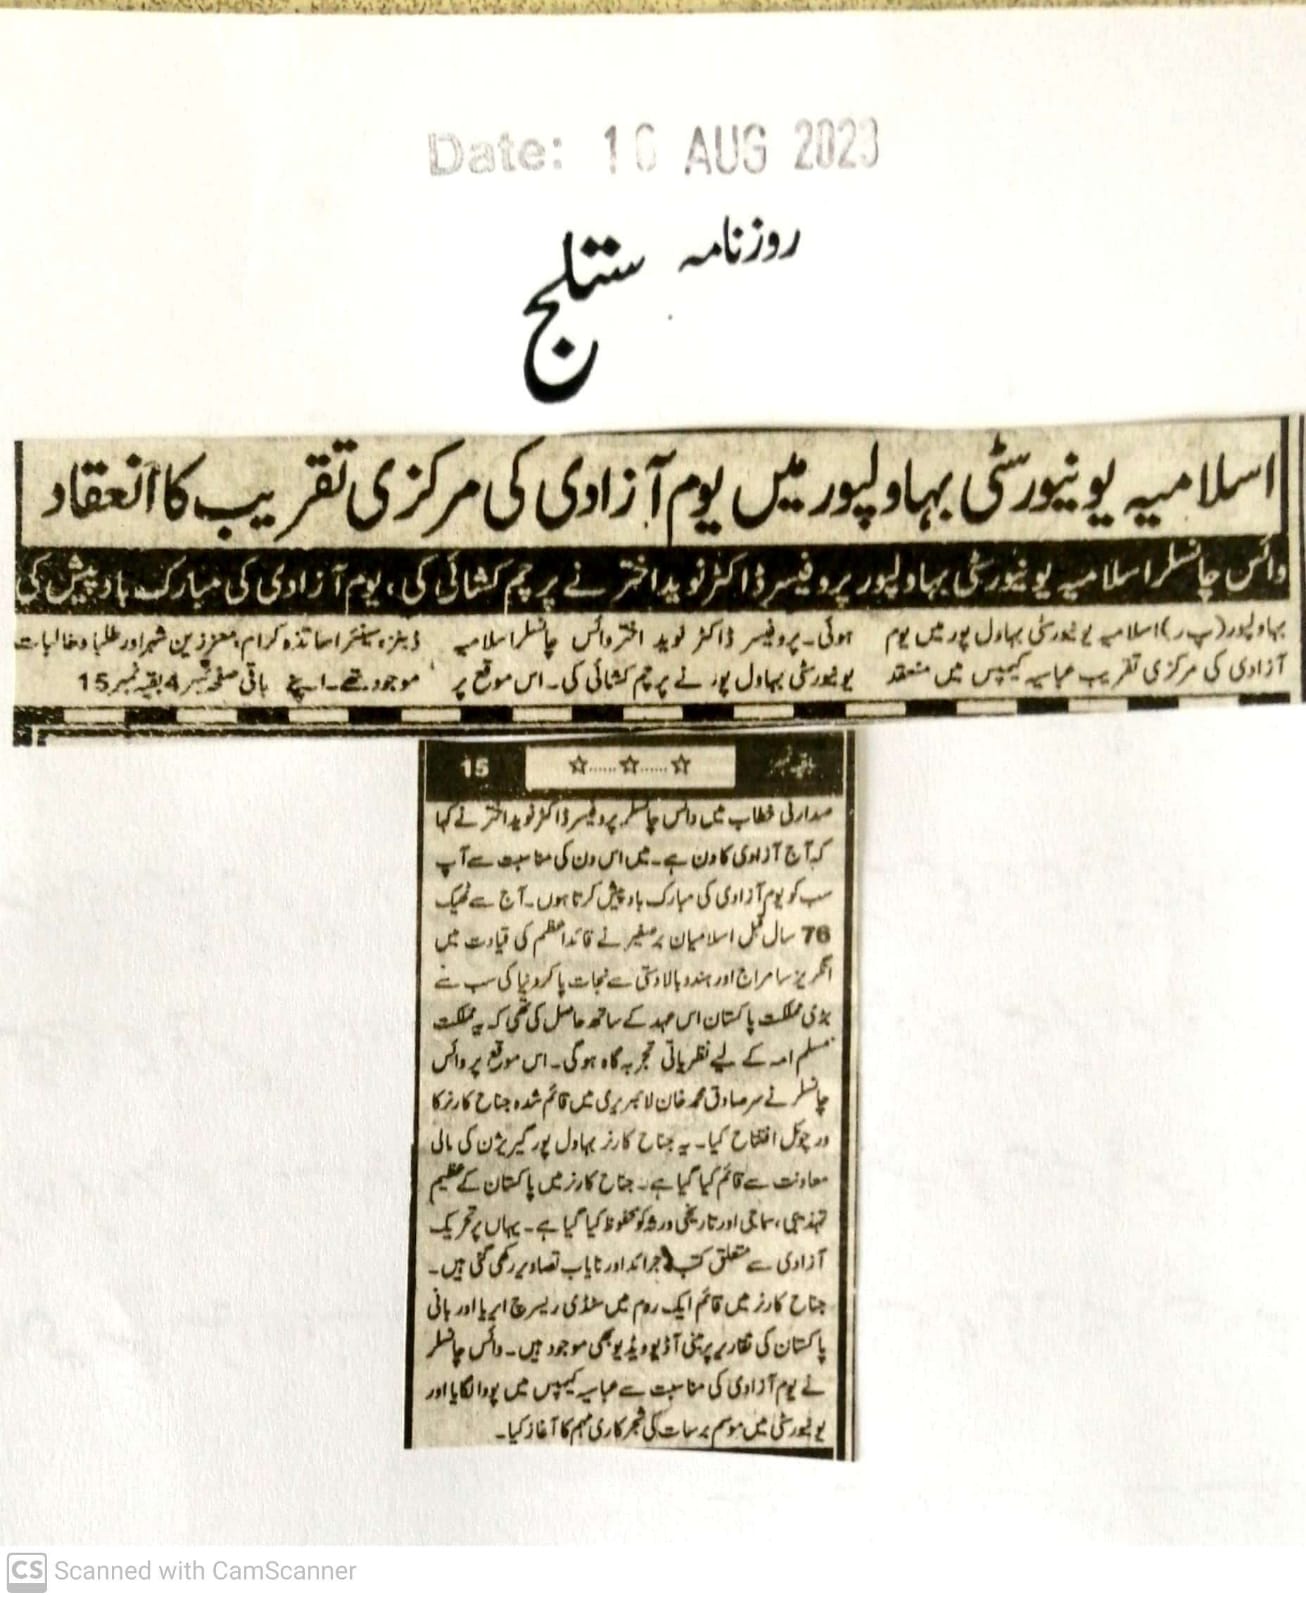 Date: 16 AUG 2023
روزنامہ ستلج
اسلامیہ یونیورسٹی بہاولپور میں یوم آزادی کی مرکزی تقریب کا انعقاد
وائس چانسلر اسلامیہ یونیورسٹی بہاولپور پروفیسر ڈاکٹر نوید اختر نے پرچم کشائی کی، یوم آزادی کی مبارک باد پیش کی
بہاولپور(پ ر)اسلامیہ یونیورسٹی بہاول پور میں یوم
آزادی کی مرکزی تقریب عباسیہ کیمپس میں منعقد
ہوئی۔ پروفیسر ڈاکٹر نوید اختر وائس چانسلر اسلامیہ
یونیورسٹی بہاول پور نے پرچم کشائی کی۔ اس موقع پر
ڈینز، سینئر اساتذہ کرام، معززین شہر اور طلبا و طالبات
موجود تھے۔ اپنے باقی صفحہ نمبر 4 بقیہ نمبر 15
بقیہ نمبر ☆.....☆.....☆ 15
صدارتی خطاب میں وائس چانسلر پروفیسر ڈاکٹر نوید اختر نے کہا
کہ آج آزادی کا دن ہے۔ میں اس دن کی مناسبت سے آپ
سب کو یوم آزادی کی مبارک باد پیش کرتا ہوں۔ آج سے ٹھیک
76 سال قبل اسلامیان برصغیر نے قائداعظم کی قیادت میں
انگریز سامراج اور ہندو بالادستی سے نجات پا کر دنیا کی سب سے
بڑی مملکت پاکستان اس عہد کے ساتھ حاصل کی تھی کہ یہ مملکت
مسلم امہ کے لیے نظریاتی تجربہ گاہ ہوگی۔ اس موقع پر وائس
چانسلر نے سر صادق محمد خان لائبریری میں قائم شدہ جناح کارنر کا
ورچوئل افتتاح کیا۔ یہ جناح کارنر بہاول پور گیریژن کی مالی
معاونت سے قائم کیا گیا ہے۔ جناح کارنر میں پاکستان کے عظیم
تہذیبی، سماجی اور تاریخی ورثہ کو محفوظ کیا گیا ہے۔ یہاں پر تحریک
آزادی سے متعلق کتب، جرائد اور نایاب تصاویر رکھی گئی ہیں۔
جناح کارنر میں قائم ایک روم میں سٹڈی ریسرچ ایریا اور بانی
پاکستان کی تقاریر پر مبنی آڈیو ویڈیو بھی موجود ہیں۔ وائس چانسلر
نے یوم آزادی کی مناسبت سے عباسیہ کیمپس میں پودا لگایا اور
یونیورسٹی میں موسم برسات کی شجرکاری مہم کا آغاز کیا۔
CS Scanned with CamScanner